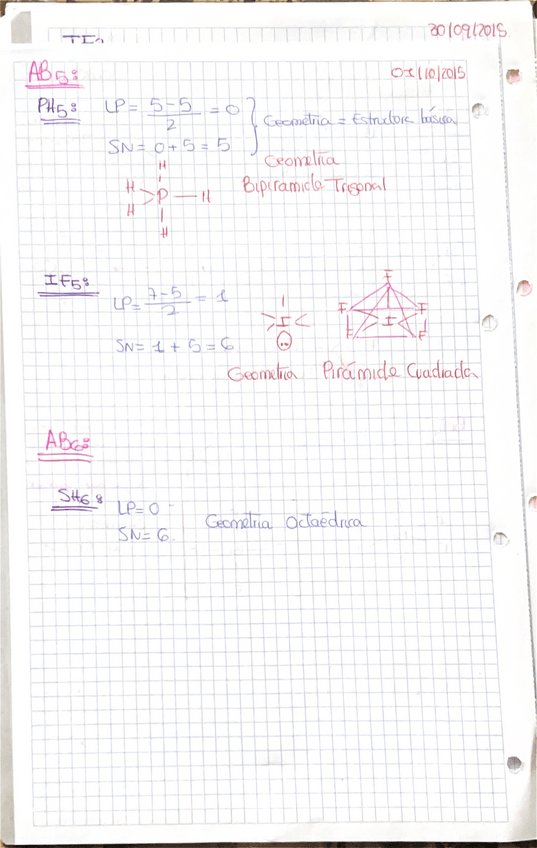 30/09/2015
AB5:
01/10/2015
PH5: LP= 5-5/2 = 0
SN= 0+5 = 5
Geometría = Estructura básica
Geometría
Bipiramide Trigonal
H
H
H
P — H
H
IF5:
LP= 7-5/2 = 1
SN= 1 + 5 = 6
I
F
F I F
F F
Geometría Pirámide Cuadrada
AB6:
SH6: LP=0
SN= 6.
Geometría Octaédrica